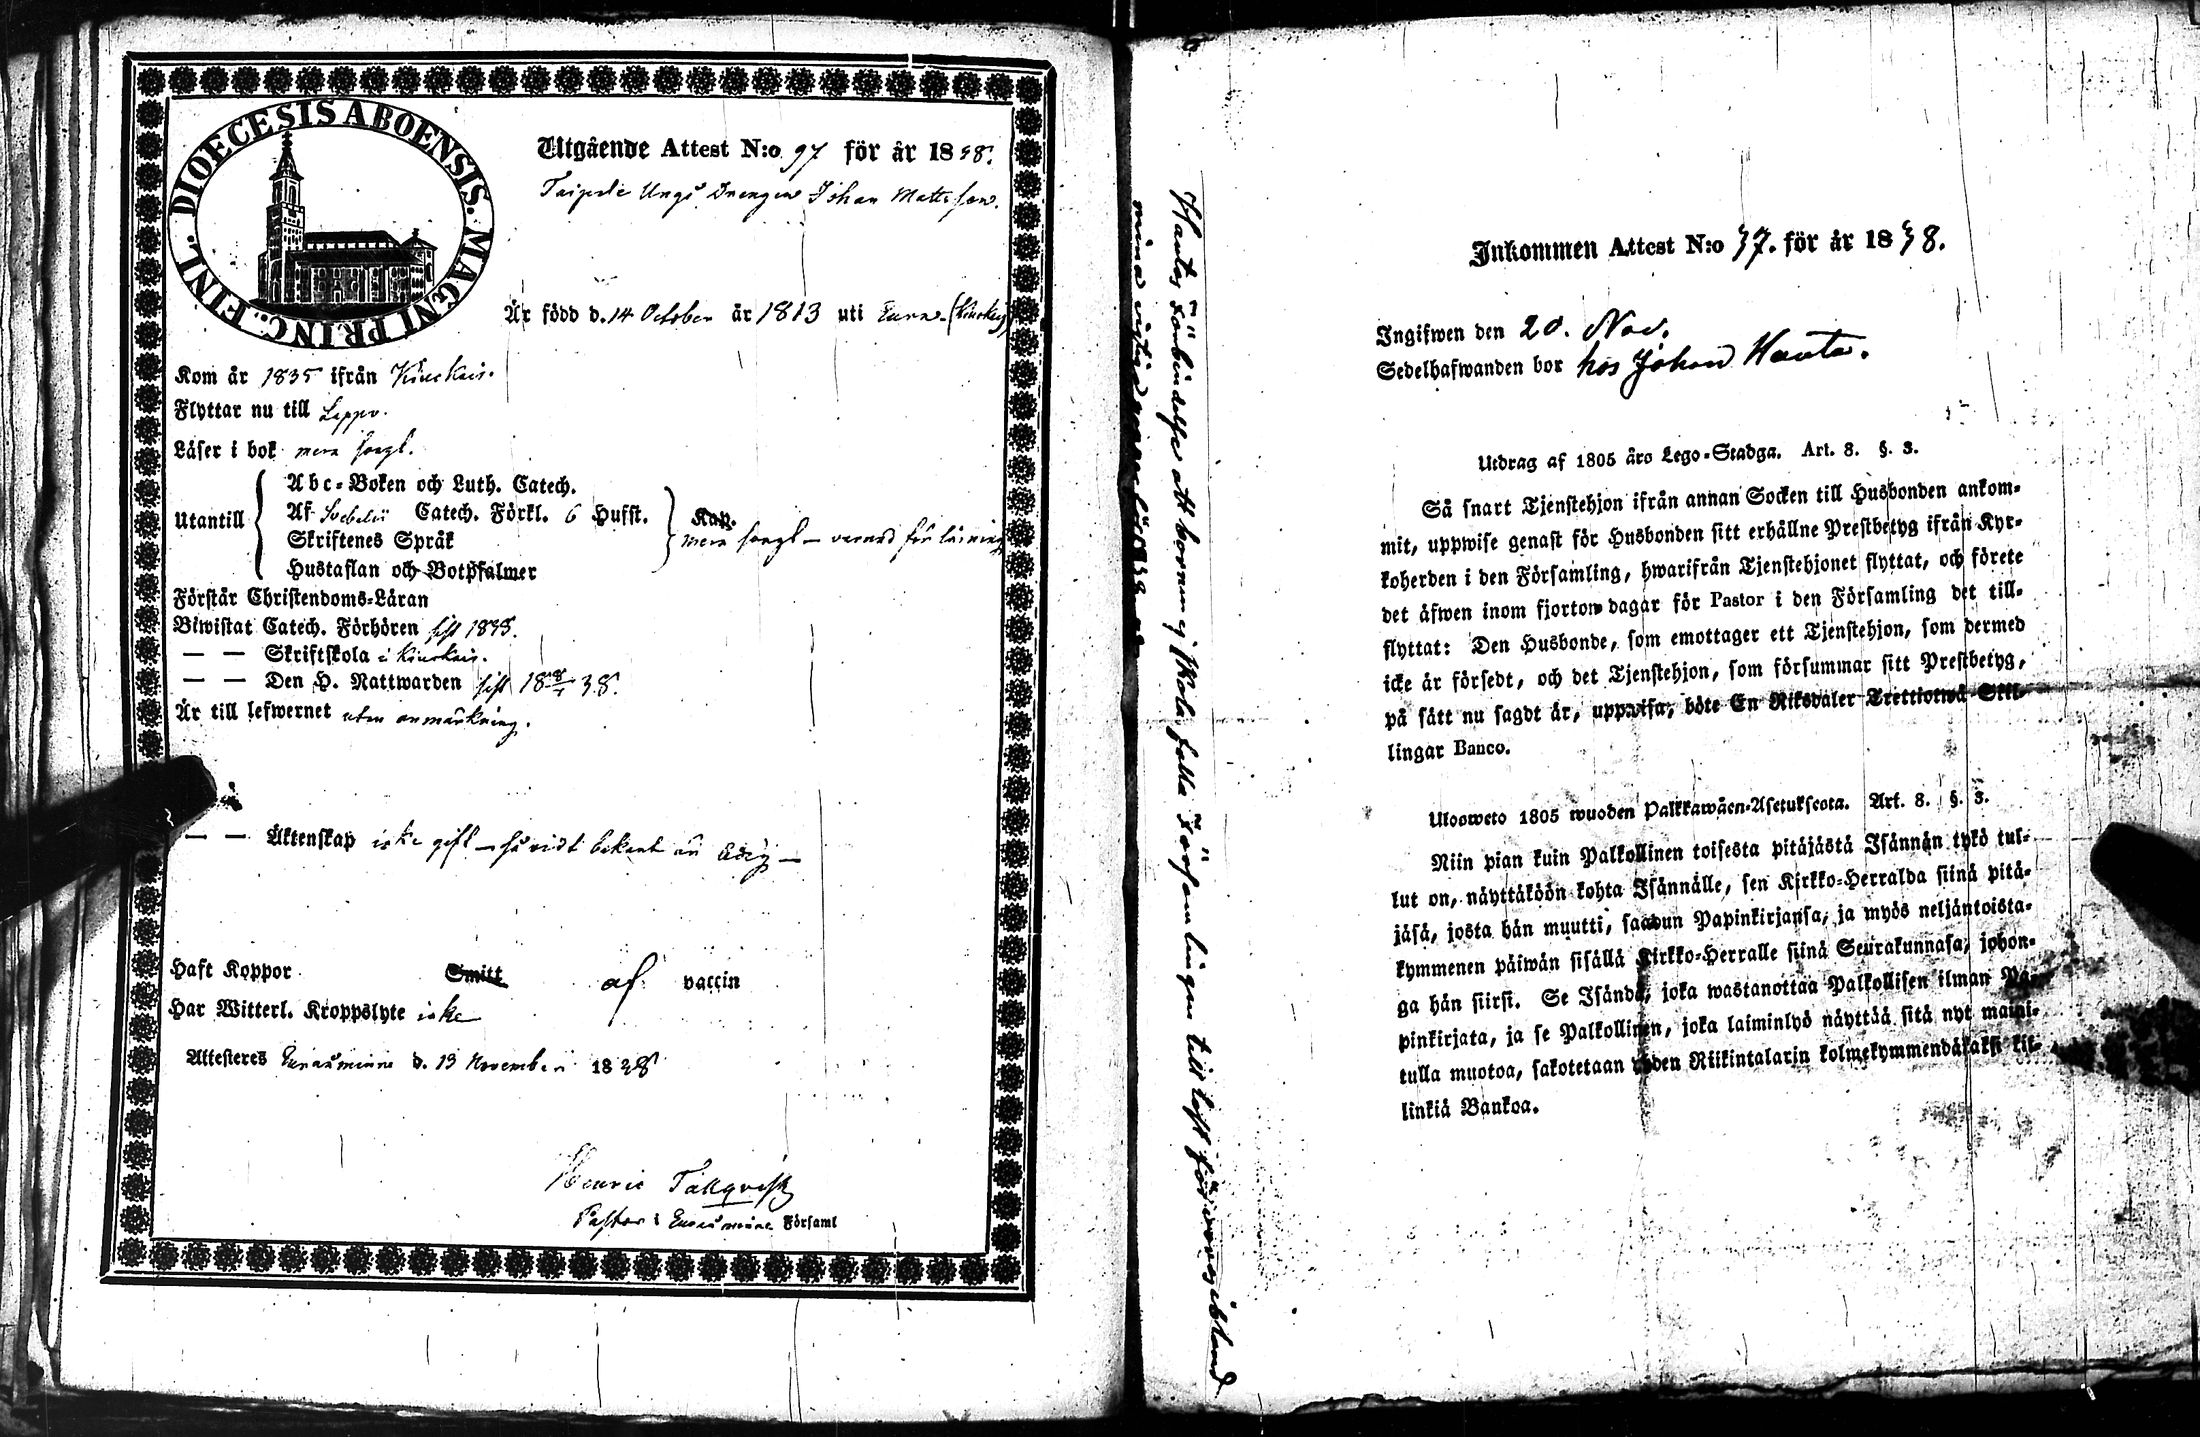 DIOECESIS ABOENSIS. MAGNI PRINC. FINL.
Utgående Attest N:o 97 för år 1838.
Taipale Ungs Drengen Johan Mattsson.
Är född d. 14 October år 1813 uti Eura (Kiukais)
Kom år 1835 ifrån Kiukais.
Flyttar nu till Lappo.
Läser i bok mera försvarl.
Abc-Boken och Luth. Catech.
Utantill Af Svebelii Catech. Förkl. 6 Hufst. Kap.
Skriftenes Språk
Hustaflan och Botpsalmer
Förstår Christendoms-Läran
Biwistat Catech. Förhören sist 1838.
— — Skriftskola i Kiukais.
— — Den H. Nattwarden sist 38.
Är till lefwernet utan anmärkning.
— — Äktenskap icke gift — så vidt bekant är ledig —
Haft Koppor Smitt af vaccin
Har Witterl. Kroppslyte icke
Attesteres Euraåminne d. 13 November 1838
Henric Tallqvist
Pastor i Euraåminne Församl
Hantas Förbindelse att barnen ej skola falla Församlingen till last förvaras ibland
mina
Inkommen Attest N:o 37. för år 1838.
Ingifwen den 20. Nov.
Sedelhafwanden bor hos Johan Hanta.
Utdrag af 1805 års Lego-Stadga. Art. 8. §. 3.
Så snart Tjenstehjon ifrån annan Socken till Husbonden ankom-
mit, uppwise genast för Husbonden sitt erhållne Prestbetyg ifrån Kyr-
koherden i den Församling, hwarifrån Tjenstehjonet flyttat, och förete
det äfwen inom fjorton dagar för Pastor i den Församling det till-
flyttat: Den Husbonde, som emottager ett Tjenstehjon, som dermed
icke är försedt, och det Tjenstehjon, som försummar sitt Prestbetyg,
på sätt nu sagdt är, uppwisa, böte En Riksdaler Trettiotwå Skil-
lingar Banco.
Ulosweto 1805 wuoden Palkkawäen-Asetuksesta. Art. 8. §. 3.
Niin pian kuin Palkollinen toisesta pitäjästä Isännän tykö tul-
lut on, näyttäköön kohta Isännälle, sen Kirkko-Herralda siinä pitä-
jäsä, josta hän muutti, saadun Papinkirjansa, ja myös neljäntoista-
kymmenen päiwän sisällä Kirkko-Herralle siinä Seurakunnasa, johon-
ga hän siirsi. Se Isändä, joka wastanottaa Palkollisen ilman Pa-
pinkirjata, ja se Palkollinen, joka laiminlyö näyttää sitä nyt maini-
tulla muotoa, sakotetaan yhden Riikintalarin kolmekymmendäkaksi kil-
linkiä Bankoa.